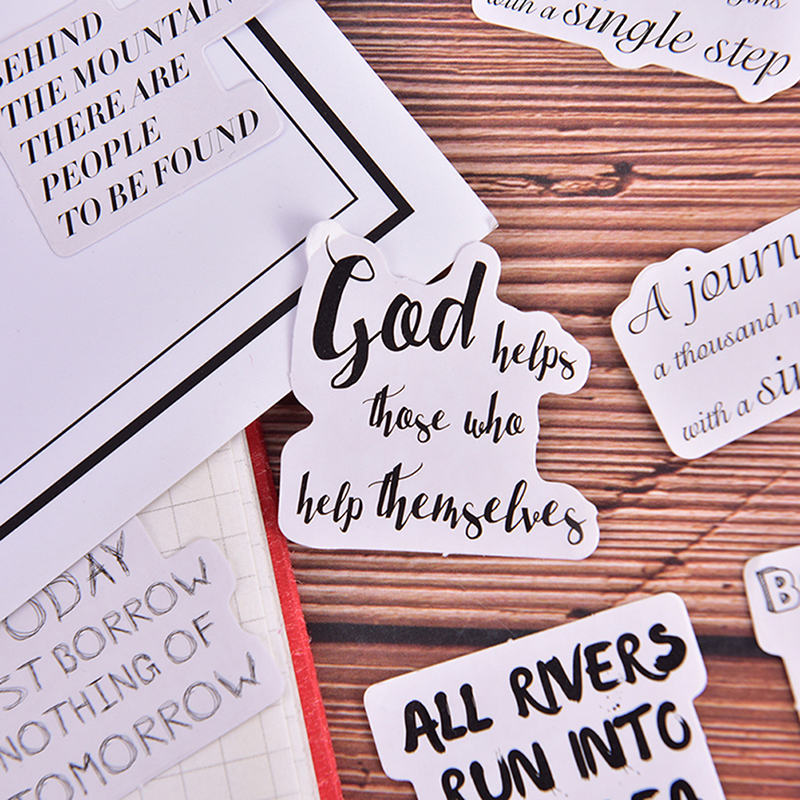 BEHIND
THE MOUNTAIN
THERE ARE
PEOPLE
TO BE FOUND
with a single step
God helps
those who
help themselves
A journ
a thousand m
with a si
ODAY
ST BORROW
NOTHING OF
TOMORROW
ALL RIVERS
RUN INTO
B